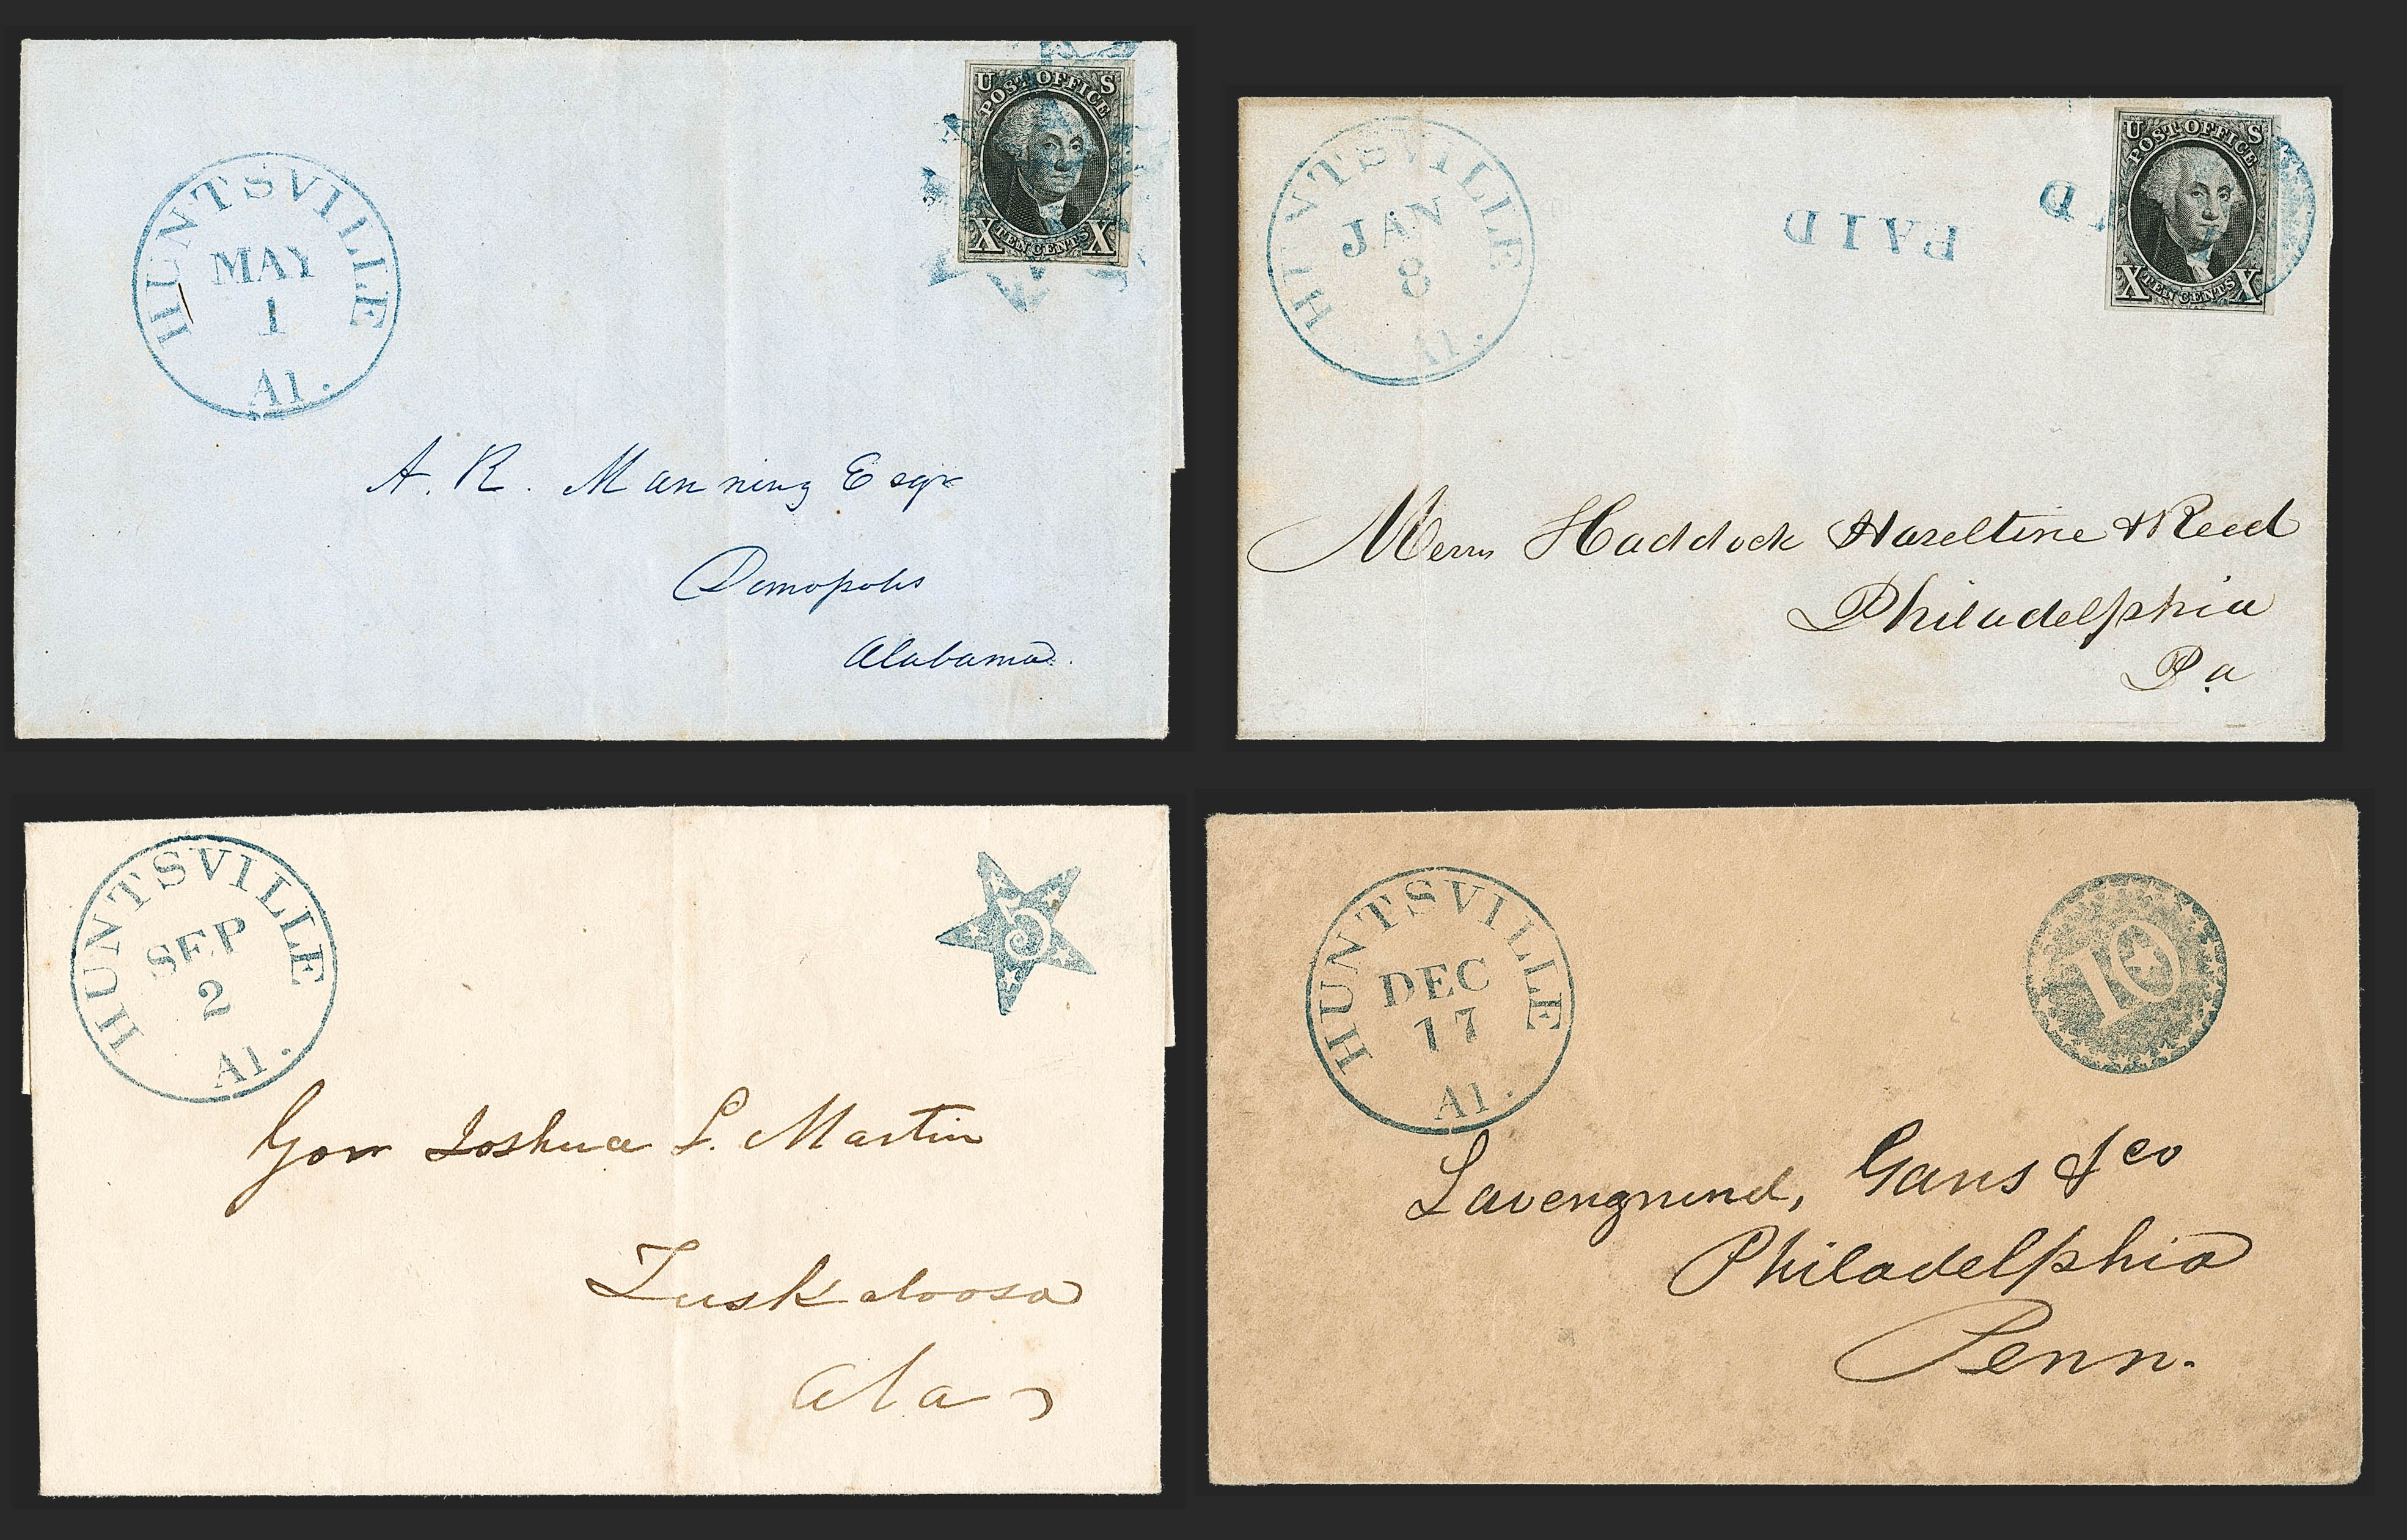 HUNTSVILLE
MAY
1
Al.
U S
POST OFFICE
X TEN CENTS X
A. R. Manning Esqr
Demopolis
Alabama.
HUNTSVILLE
JAN
8
Al.
PAID
U S
POST OFFICE
X TEN CENTS X
Messrs Haddock Haseltine & Reed
Philadelphia
Pa
HUNTSVILLE
SEP
2
Al.
5
Gov Joshua L. Martin
Tuskaloosa
Ala
HUNTSVILLE
DEC
17
Al.
10
Lavengrund, Gans & Co
Philadelphia
Penn.